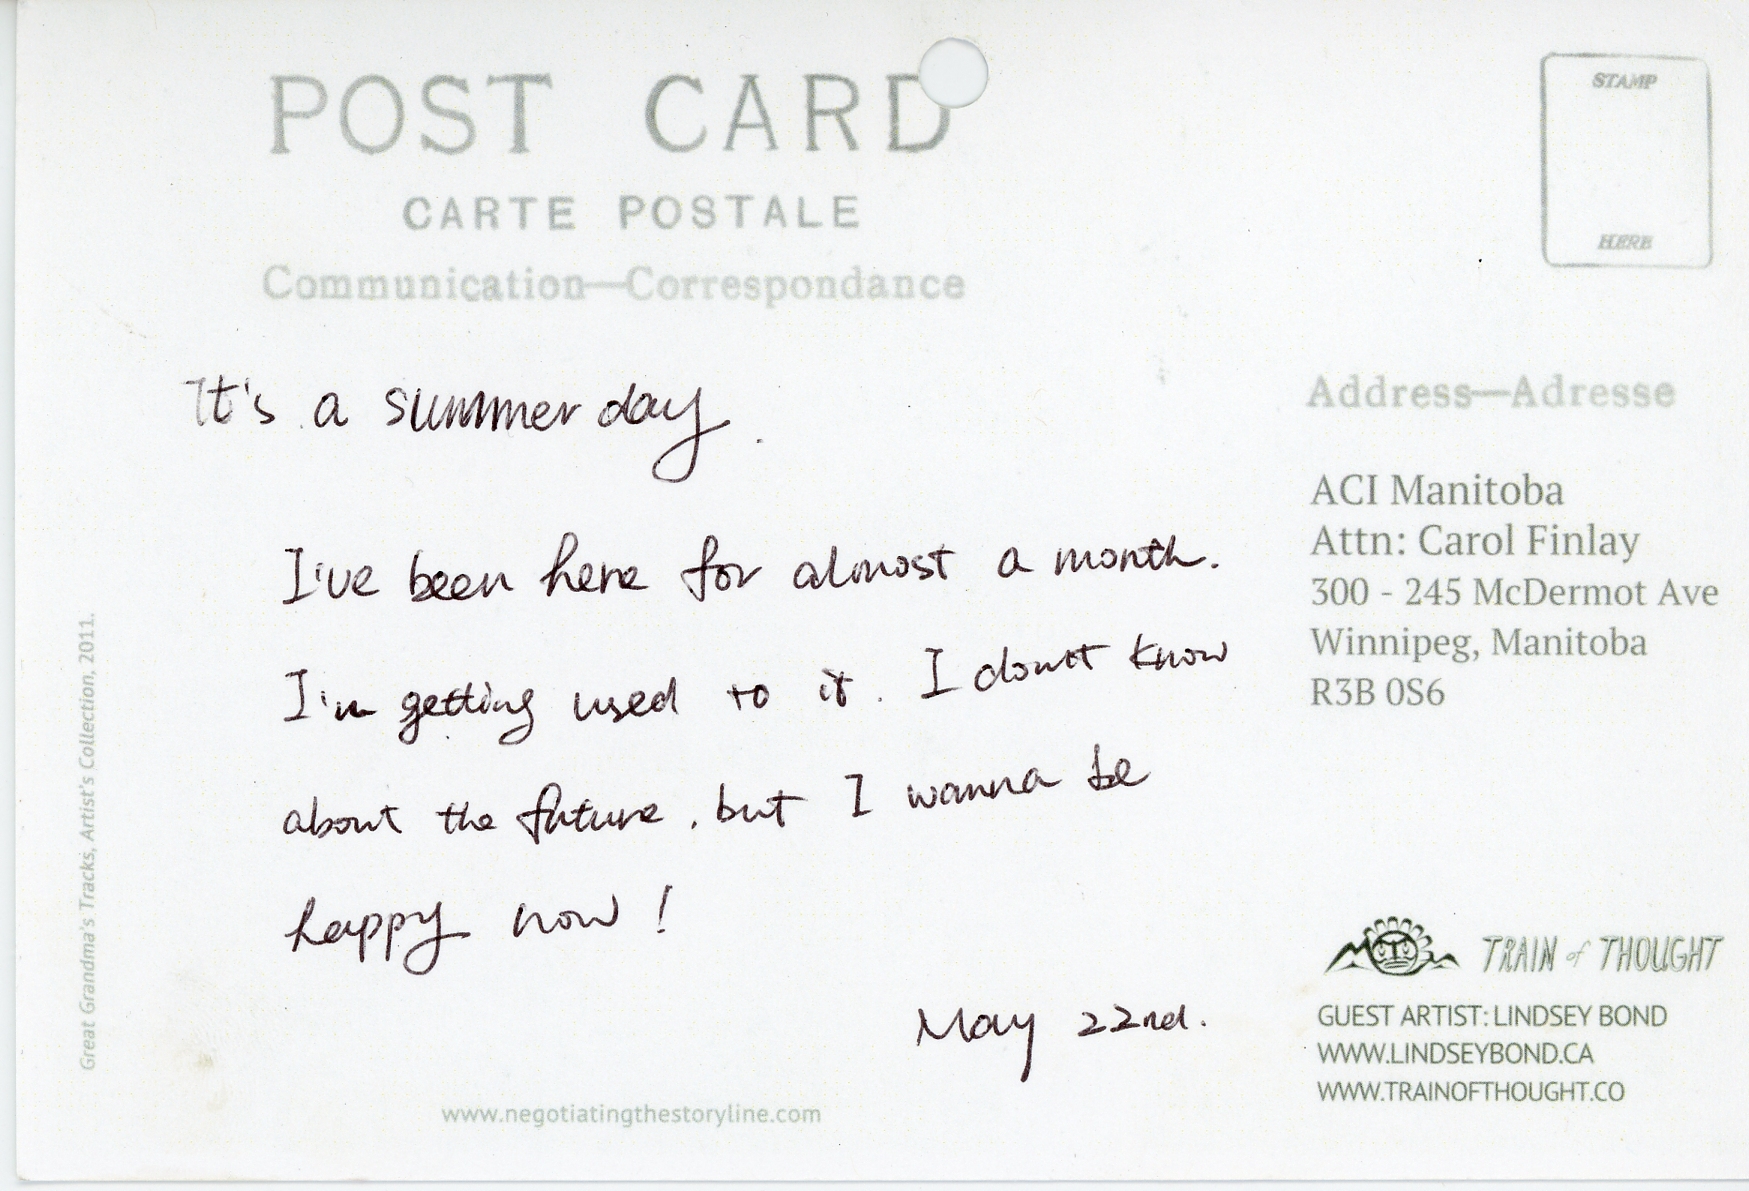 POST CARD
CARTE POSTALE
Communication—Correspondance
STAMP
HERE
It's a summer day.
I've been here for almost a month.
I'm getting used to it. I don't know
about the future, but I wanna be
happy now!
May 22nd.
Address—Adresse
ACI Manitoba
Attn: Carol Finlay
300 - 245 McDermot Ave
Winnipeg, Manitoba
R3B 0S6
TRAIN of THOUGHT
GUEST ARTIST: LINDSEY BOND
WWW.LINDSEYBOND.CA
WWW.TRAINOFTHOUGHT.CO
Great Grandma's Tracks, Artist's Collection, 2011.
www.negotiatingthestoryline.com